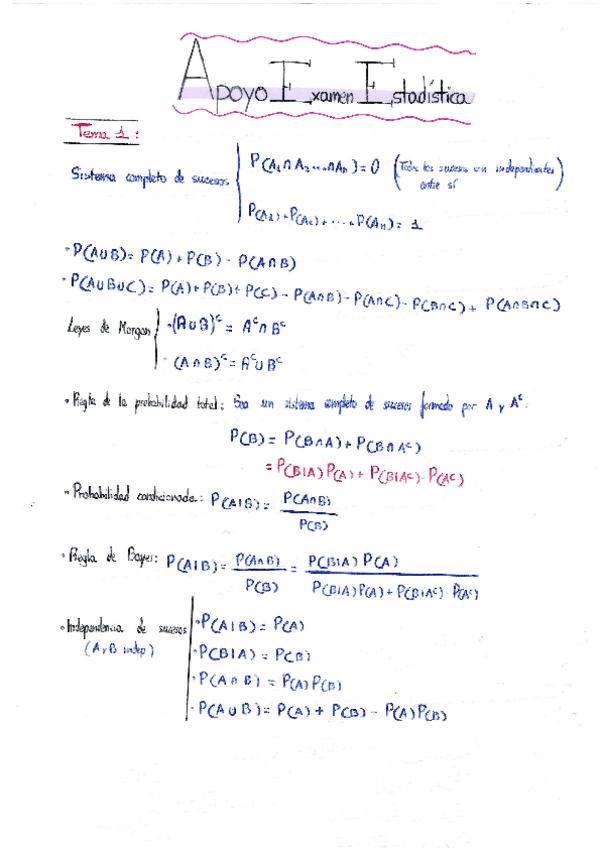 Apoyo Examen Estadística
Tema 1:
Sistema completo de sucesos
P(A₁∩A₂...∩Aₙ)=0 (Todos los sucesos son independientes
entre sí)
P(A₁)+P(A₂)+...+P(Aₙ)= 1
• P(A∪B)= P(A)+P(B)- P(A∩B)
• P(A∪B∪C)= P(A)+P(B)+P(C)-P(A∩B)-P(A∩C)-P(B∩C)+ P(A∩B∩C)
Leyes de Morgan
• (A∪B)ᶜ= Aᶜ∩Bᶜ
• (A∩B)ᶜ= Aᶜ∪Bᶜ
• Regla de la probabilidad total: Sea un sistema completo de sucesos formado por A y Aᶜ.
P(B)= P(B∩A)+P(B∩Aᶜ)
= P(B|A)P(A)+ P(B|Aᶜ)·P(Aᶜ)
• Probabilidad condicionada: P(A|B)= P(A∩B)/P(B)
• Regla de Bayes: P(A|B)= P(A∩B)/P(B) = P(B|A)P(A)/P(B|A)P(A)+P(B|Aᶜ)·P(Aᶜ)
• Independencia de sucesos
(A y B indep)
• P(A|B)= P(A)
• P(B|A)= P(B)
• P(A∩B)= P(A)P(B)
• P(A∪B)= P(A)+ P(B)- P(A)P(B)